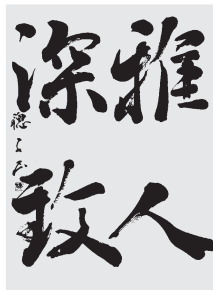 雅人
深致